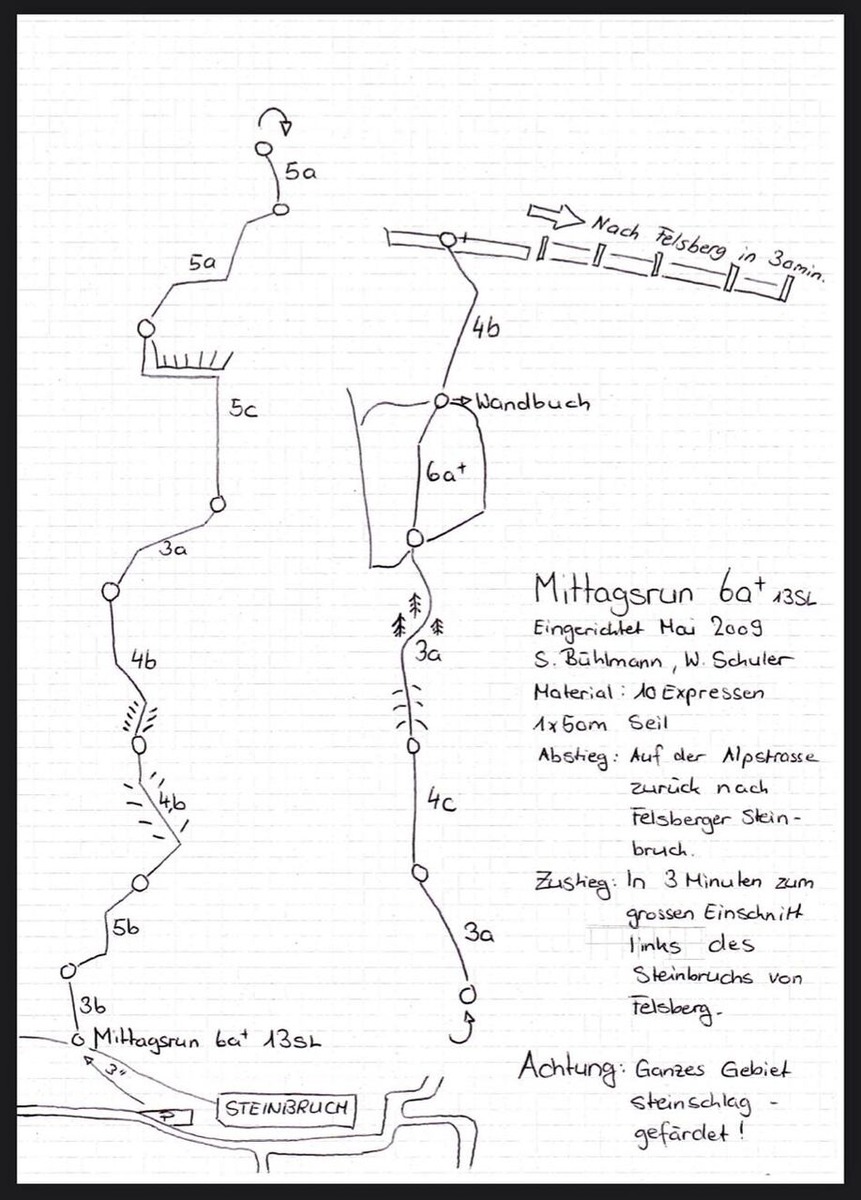 5a
5a
5c
3a
4b
4b
5b
3b
Mittagsrun 6a+ 13SL
3"
P
STEINBRUCH
Nach Felsberg in 30min.
4b
Wandbuch
6a+
3a
4c
3a
Mittagsrun 6a+ 13SL
Eingerichtet Mai 2009
S. Bühlmann, W. Schuler
Material: 10 Expressen
1x50m Seil
Abstieg: Auf der Alpstrasse
zurück nach
Felsberger Stein-
bruch.
Zustieg: In 3 Minuten zum
grossen Einschnitt
links des
Steinbruchs von
Felsberg.
Achtung: Ganzes Gebiet
steinschlag-
gefärdet!